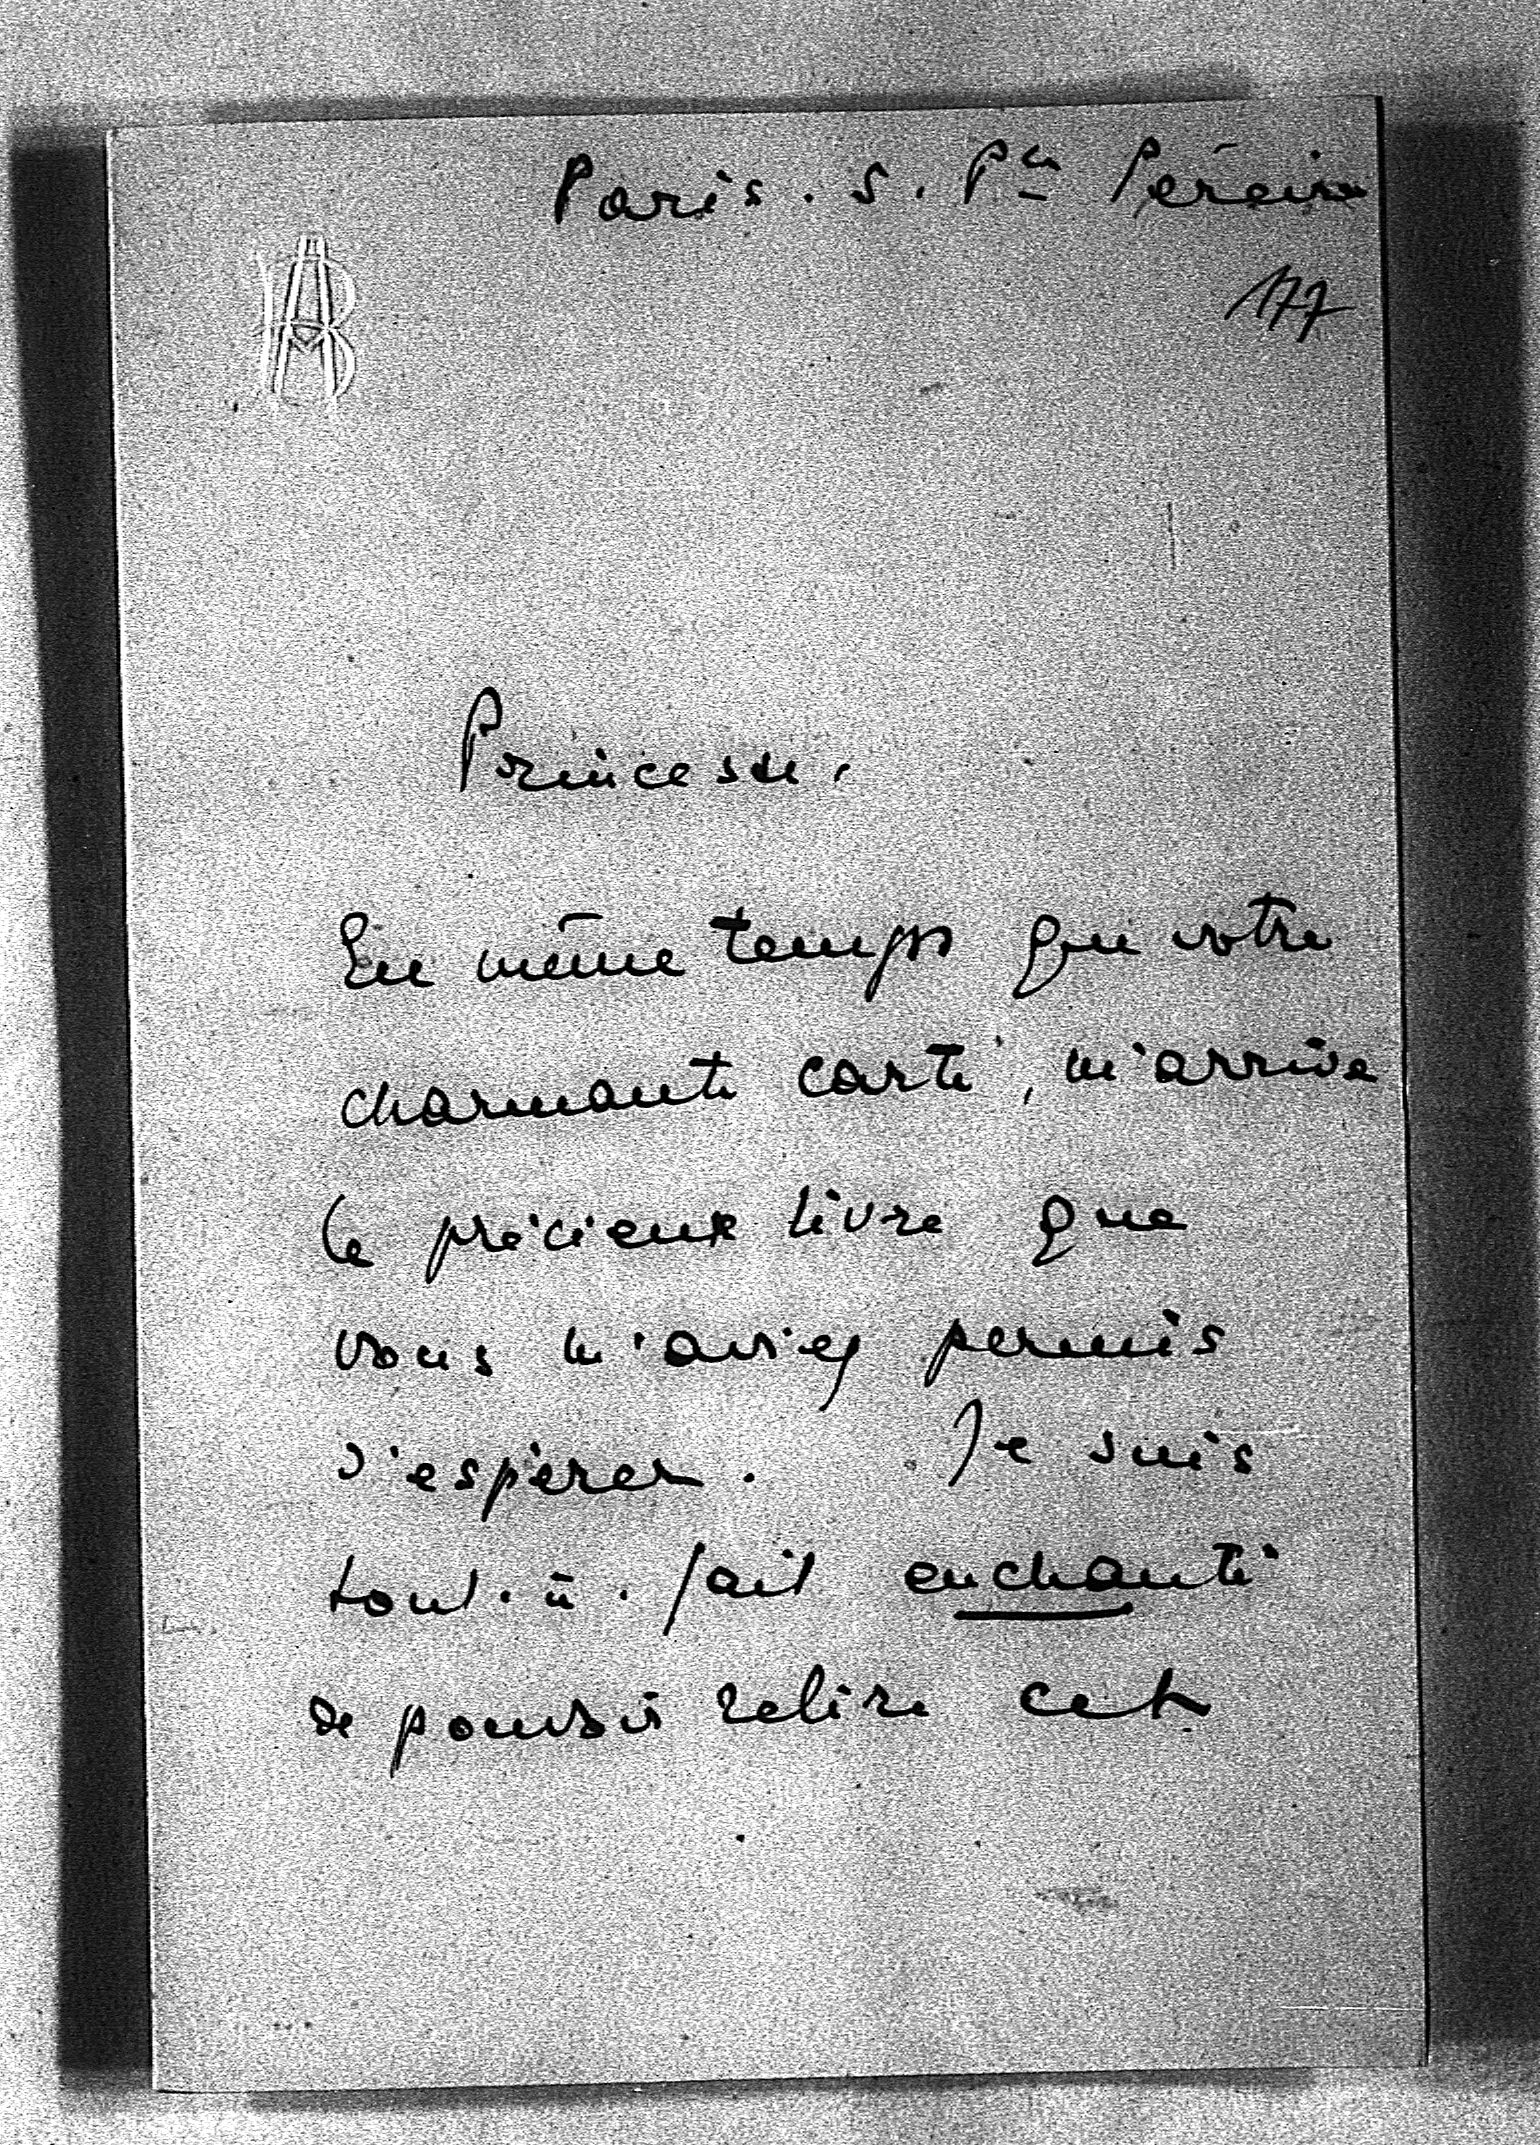 Paris. 5. Pce Péreire
177
Princesse,
En même temps que votre
charmante carte, m'arrive
le précieux livre que
vous m'aviez permis
d'espérer. Je suis
tout. à. fait enchanté
de pouvoir relire cet